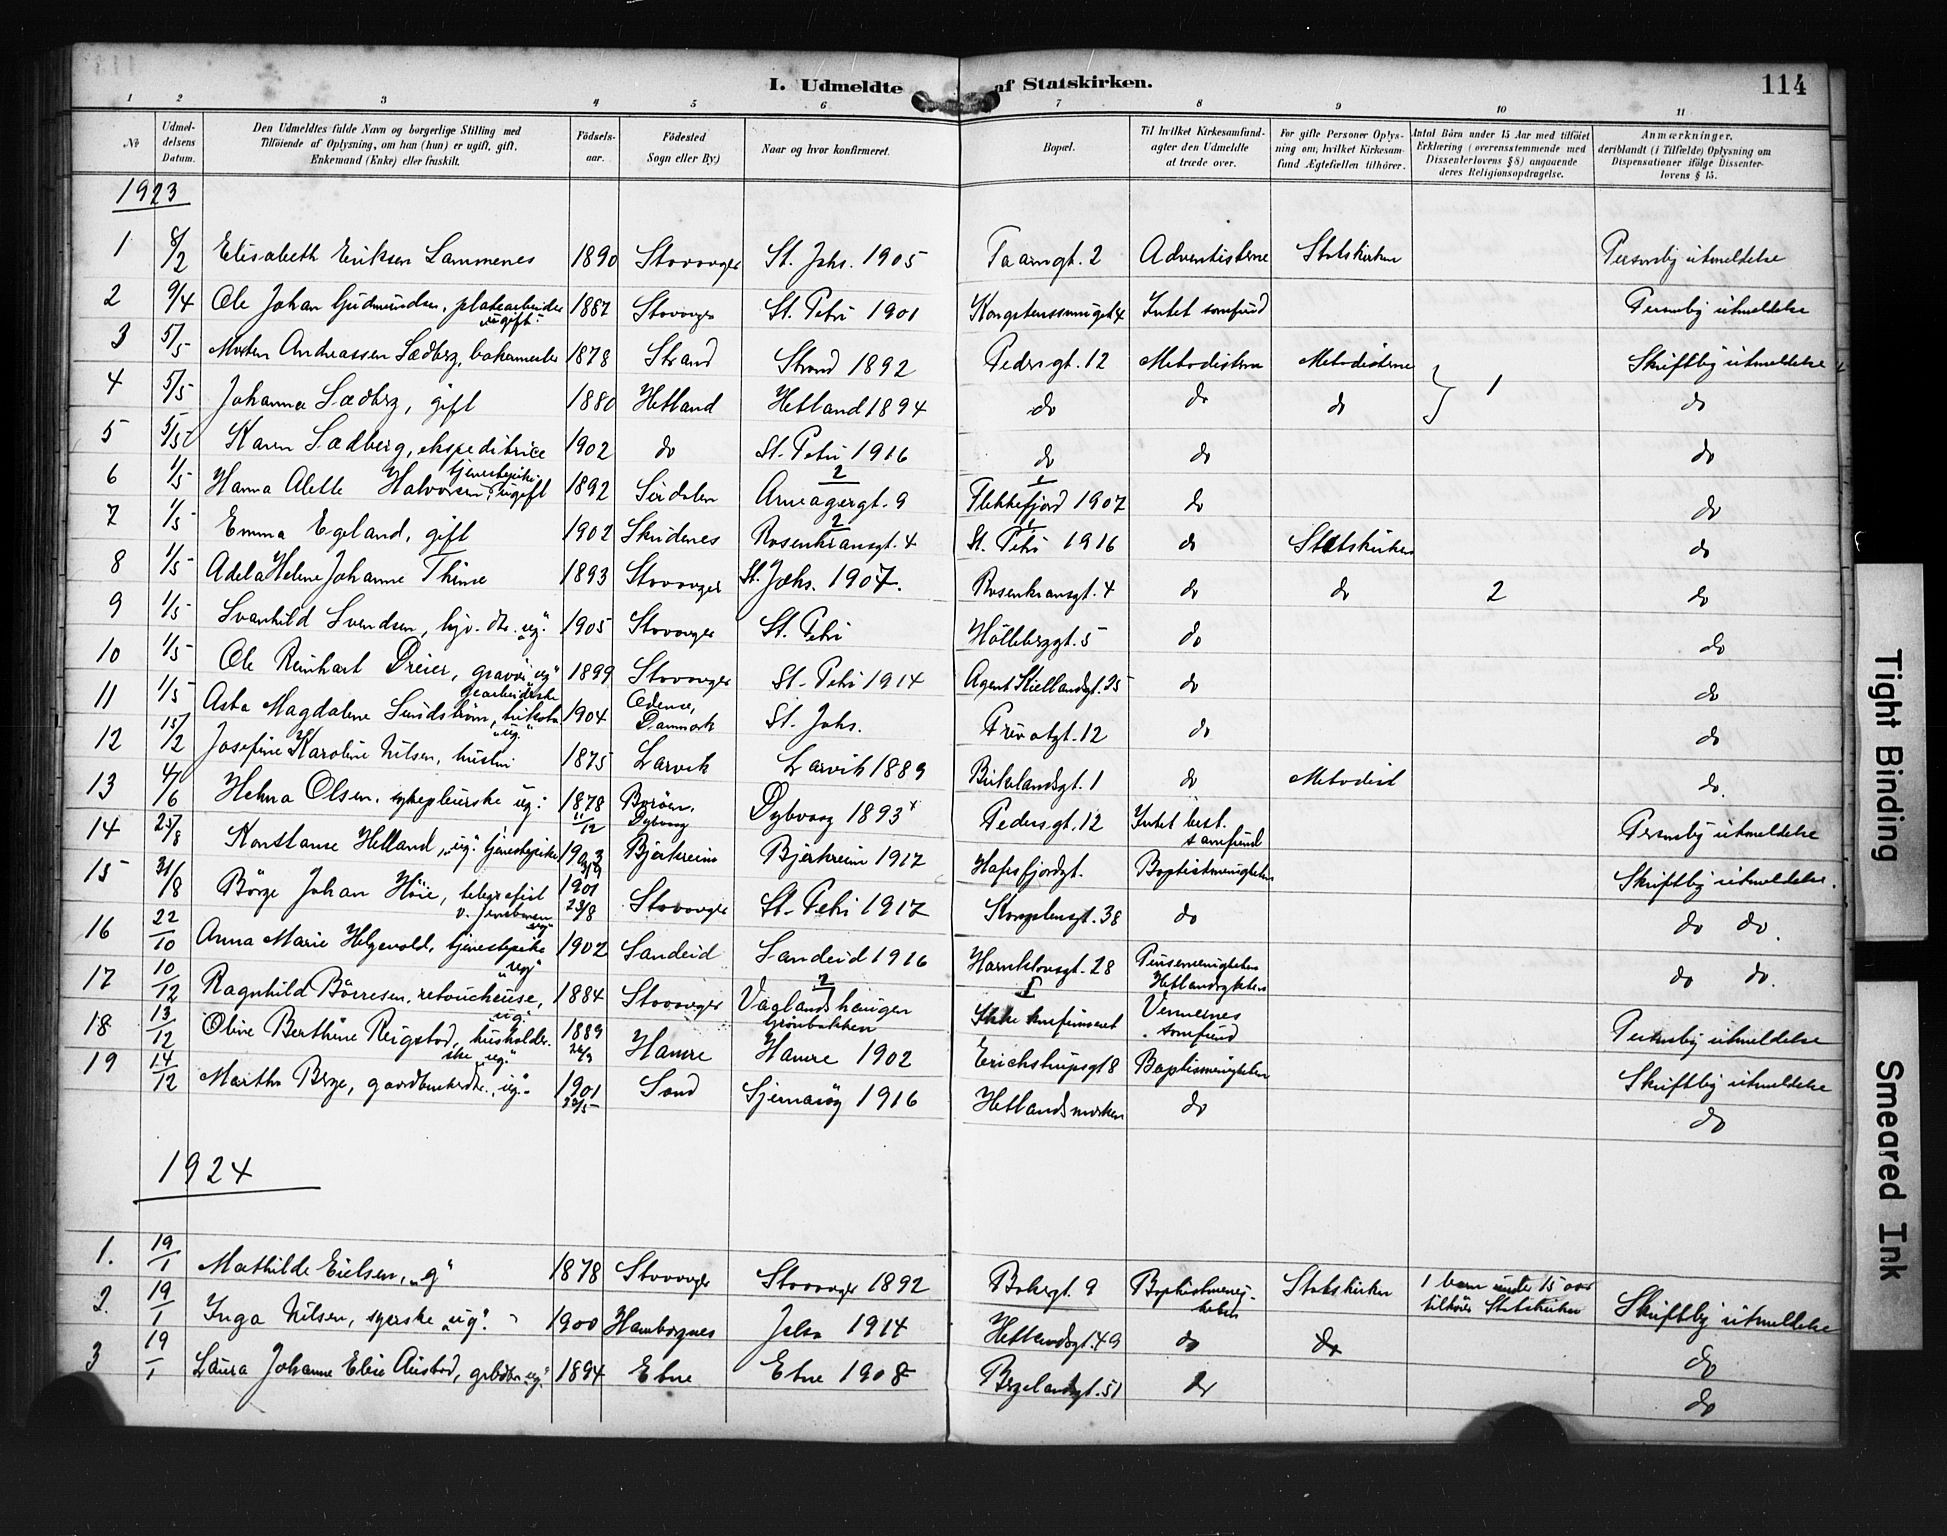 114
I. Udmeldte af Statskirken.
1 2 3 4 5 6 7 8 9 10 11
No
Udmeldelsens Datum.
Den Udmeldtes fulde Navn og borgerlige Stilling med
Tilføiende af Oplysning, om han (hun) er ugift, gift,
Enkemand (Enke) eller fraskilt.
Fødselsaar.
Fødested
Sogn eller By)
Naar og hvor konfirmeret.
Bopæl.
Til hvilket Kirkesamfund-
agter den Udmeldte
at træde over.
For gifte Personer Oplys-
ning om, hvilket Kirkesam-
fund Ægtefællen tilhører.
Antal Børn under 15 Aar med tilføiet
Erklæring (overensstemmende med
Dissenterlovens § 8) angaaende
deres Religionsopdragelse.
Anmærkninger,
deriblandt (i Tilfælde) Oplysning om
Dispensationer ifølge Dissenter-
lovens § 15.
1923
1 8/2 Elisabeth Eriksen Sammenes 1890 Stavanger St. Johs. 1905 Taarngt. 2 Adventisterne Statskirken Personlig utmeldelse
2 9/4 Ole Johan Gudmundsen, platearbeider ugift 1887 Stavanger St. Petri 1901 Intet samfund Personlig utmeldelse
3 5/5 Morten Andreassen Sædberg, bakermester 1878 Strand Strand 1892 Pedersgt. 12 Metodisterne Metodisterne Skriftlig utmeldelse
4 5/5 Johanna Sædberg, gift 1880 Hetland Hetland 1894 do do do } 1 do
5 5/5 Karen Sædberg, ekspeditrice 1902 do St. Petri 1916 do do do
6 1/5 Hanna Alette Halvorsen, tjenestepike ugift 1892 Sirdalen 2 Arneagergt. 9 1 Flekkefjord 1907 do do
7 1/5 Emma Egeland, gift 1902 Skudenes 2 Rosenkransgt. 4 1 St. Petri 1916 do Statskirken do
8 1/5 Adela Helene Johanne Thime 1893 Stavanger St. Johs. 1907. Rosenkransgt. 4 do do 2 do
9 1/5 Svanhild Svendsen, hjv. dtr. "ug." 1905 Stavanger St. Petri Holbergsgt. 5 do do
10 1/5 Ole Reinhart Dreier, gravør "ug" 1899 Stavanger St. Petri 1914 Agent Kiellandsgt. 35 do do
11 1/5 Asta Magdalene Sundstrøm, trikotagearbeiderske "ug." 1904 Odense, Danmark St. Johs. Privatgt. 12 do do
12 15/2 Josefine Karoline Nilsen, hustru 1875 Larvik Larvik 1889 Birkelandsgt. 1 do Metodist do.
13 4/6 Helma Olsen, sykepleierske ug: 1878 11/12 Borøen, Dybvaag Dybvaag 1893 x Pedersgt. 12 Intet best. samfund Personlig utmeldelse
14 25/8 Konstanse Helland, "ug." tjenestepike 1903 Bjerkreim Bjerkreim 1917 Hafrsfjordgt. Baptistmenigheten Skriftlig utmeldelse.
15 31/8 Børge Johan Høie, telegrafist v. jernbanen "ug" 1901 23/8 Stavanger St. Petri 1917 Kongstensgt. 38 do do do.
16 22/10 Anna Marie Helgevold, tjenestepike "ug" 1902 Sandeid Sandeid 1916 28 Pinsemenigheten do do.
17 10/12 Ragnhild Børresen, retoucheuse, "ug." 1884 Stavanger 2 Vaalandshaugen 1 Ikke konfirmeret Vennernes samfund Personlig utmeldelse
18 13/12 Oline Berthine Reigstad, husholderske "ug" 1889 Hamre Hamre 1902 Erichstrupsgt 8 Baptismenigheten Skriftlig utmeldelse
19 14/12 Martha Berge, gaardbrukerdtr., "ug." 1901 Sand Sjernarøy 1916 Hetlandsmarken do do
1924
1. 19/1 Mathilde Eielsen, "g" 1878 Stavanger Stavanger 1892 Bakergt. 9 Baptistmenigheten Statskirken 1 barn under 15 aar tilhører Statskirken Skriftlig utmeldelse
2. 19/1 Inga Nilsen, syerske "ug". 1900 Jelsa 1914 Hetlandsgt. 49 do do do
3 19/1 Laura Johanne Eline Austad, "ug." 1894 Etne Etne 1908 Bergelandsgt. 51 do do
Tight Binding
Smeared Ink